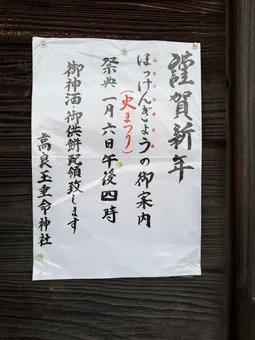 謹賀新年
ほっけんぎょうの御案内
(火まつり)
祭典一月六日午後四時
御神酒・御供餅配領致します
高良玉垂命神社